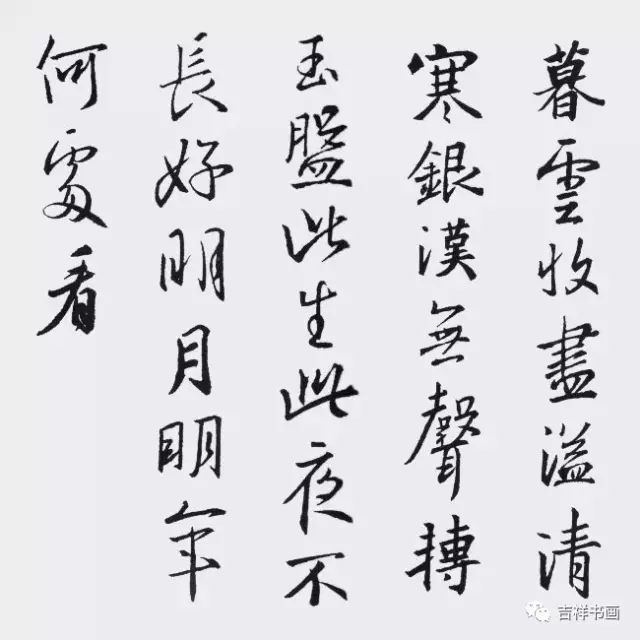 暮雲收盡溢清
寒銀漢無聲摶
玉盤此生此夜不
長好明月明年
何處看
吉祥书画